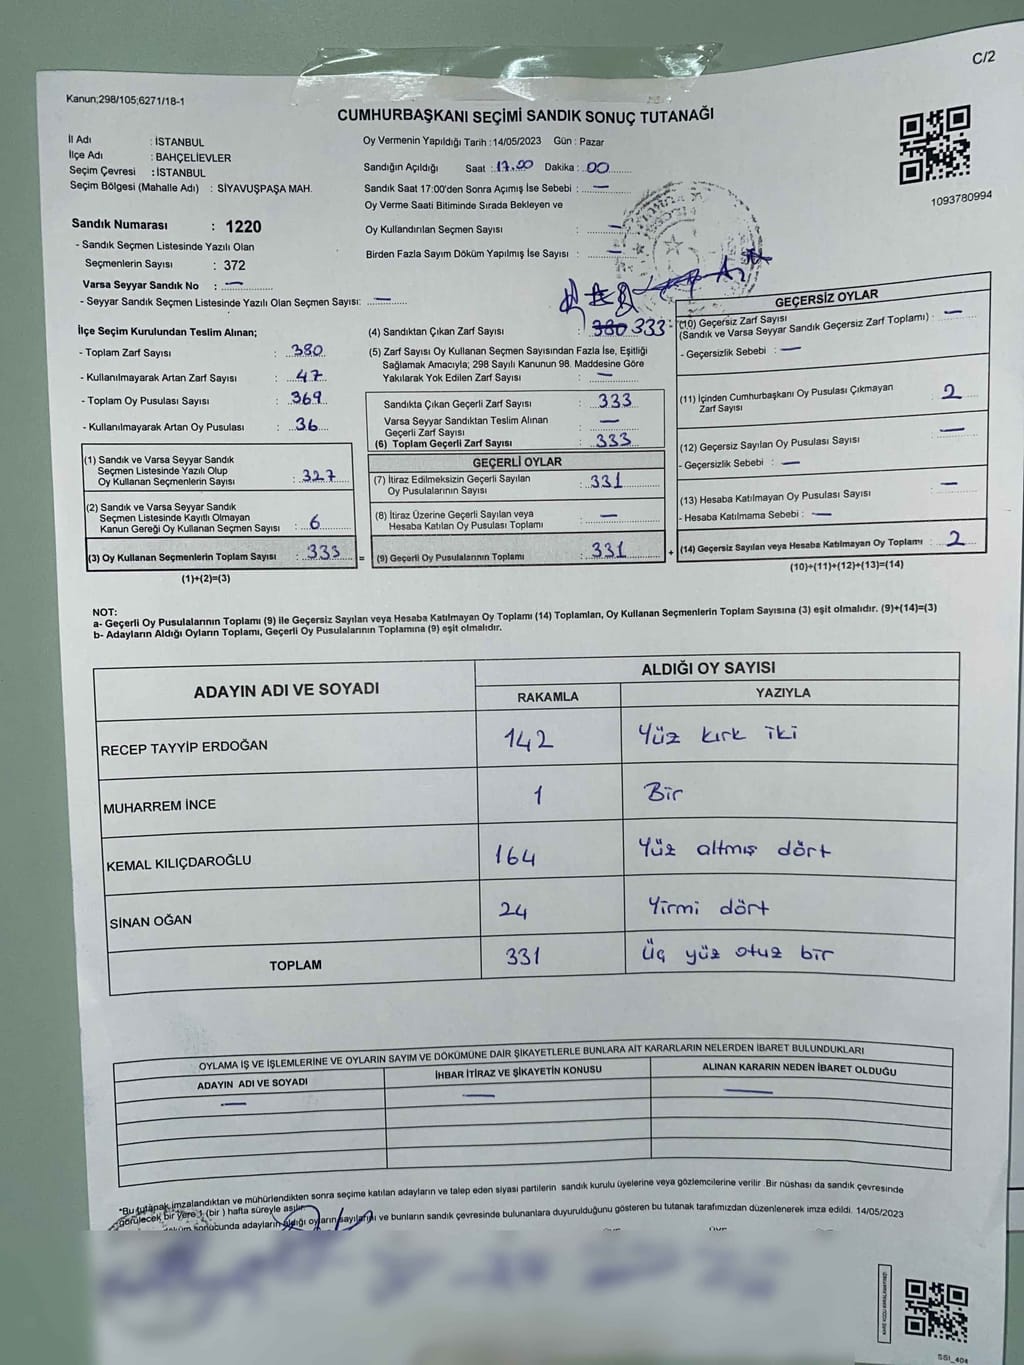 C/2
Kanun;298/105;6271/18-1
CUMHURBAŞKANI SEÇİMİ SANDIK SONUÇ TUTANAĞI
İl Adı : İSTANBUL
İlçe Adı : BAHÇELİEVLER
Seçim Çevresi : İSTANBUL
Seçim Bölgesi (Mahalle Adı) : SİYAVUŞPAŞA MAH.
Oy Vermenin Yapıldığı Tarih : 14/05/2023 Gün : Pazar
Sandığın Açıldığı Saat : 17.00 Dakika : 00
Sandık Saat 17:00'den Sonra Açımış İse Sebebi : —
Oy Verme Saati Bitiminde Sırada Bekleyen ve
Oy Kullandırılan Seçmen Sayısı : —
Birden Fazla Sayım Döküm Yapılmış İse Sayısı : —
1093780994
Sandık Numarası : 1220
- Sandık Seçmen Listesinde Yazılı Olan
Seçmenlerin Sayısı : 372
Varsa Seyyar Sandık No : —
- Seyyar Sandık Seçmen Listesinde Yazılı Olan Seçmen Sayısı: —
İlçe Seçim Kurulundan Teslim Alınan;
- Toplam Zarf Sayısı : 380
- Kullanılmayarak Artan Zarf Sayısı : 47
- Toplam Oy Pusulası Sayısı : 369
- Kullanılmayarak Artan Oy Pusulası : 36
(1) Sandık ve Varsa Seyyar Sandık
Seçmen Listesinde Yazılı Olup
Oy Kullanan Seçmenlerin Sayısı : 327
(2) Sandık ve Varsa Seyyar Sandık
Seçmen Listesinde Kayıtlı Olmayan
Kanun Gereği Oy Kullanan Seçmen Sayısı : 6
(3) Oy Kullanan Seçmenlerin Toplam Sayısı : 333 =
(1)+(2)=(3)
(4) Sandıktan Çıkan Zarf Sayısı : 380 333
(5) Zarf Sayısı Oy Kullanan Seçmen Sayısından Fazla İse, Eşitliği
Sağlamak Amacıyla; 298 Sayılı Kanunun 98. Maddesine Göre
Yakılarak Yok Edilen Zarf Sayısı : —
Sandıkta Çıkan Geçerli Zarf Sayısı : 333
Varsa Seyyar Sandıktan Teslim Alınan
Geçerli Zarf Sayısı : —
(6) Toplam Geçerli Zarf Sayısı : 333
GEÇERLİ OYLAR
(7) İtiraz Edilmeksizin Geçerli Sayılan
Oy Pusulalarının Sayısı : 331
(8) İtiraz Üzerine Geçerli Sayılan veya
Hesaba Katılan Oy Pusulası Toplamı : —
(9) Geçerli Oy Pusulalarının Toplamı : 331 +
GEÇERSİZ OYLAR
(10) Geçersiz Zarf Sayısı
(Sandık ve Varsa Seyyar Sandık Geçersiz Zarf Toplamı) : —
- Geçersizlik Sebebi : —
(11) İçinden Cumhurbaşkanı Oy Pusulası Çıkmayan
Zarf Sayısı : 2
(12) Geçersiz Sayılan Oy Pusulası Sayısı : —
- Geçersizlik Sebebi : —
(13) Hesaba Katılmayan Oy Pusulası Sayısı : —
- Hesaba Katılmama Sebebi : —
(14) Geçersiz Sayılan veya Hesaba Katılmayan Oy Toplamı : 2
(10)+(11)+(12)+(13)=(14)
NOT:
a- Geçerli Oy Pusulalarının Toplamı (9) ile Geçersiz Sayılan veya Hesaba Katılmayan Oy Toplamı (14) Toplamları, Oy Kullanan Seçmenlerin Toplam Sayısına (3) eşit olmalıdır. (9)+(14)=(3)
b- Adayların Aldığı Oyların Toplamı, Geçerli Oy Pusulalarının Toplamına (9) eşit olmalıdır.
ADAYIN ADI VE SOYADI
ALDIĞI OY SAYISI
RAKAMLA YAZIYLA
RECEP TAYYİP ERDOĞAN 142 Yüz kırk iki
MUHARREM İNCE 1 Bir
KEMAL KILIÇDAROĞLU 164 Yüz altmış dört
SİNAN OĞAN 24 Yirmi dört
TOPLAM 331 Üç yüz otuz bir
OYLAMA İŞ VE İŞLEMLERİNE VE OYLARIN SAYIM VE DÖKÜMÜNE DAİR ŞİKAYETLERLE BUNLARA AİT KARARLARIN NELERDEN İBARET BULUNDUKLARI
ADAYIN ADI VE SOYADI İHBAR İTİRAZ VE ŞİKAYETİN KONUSU ALINAN KARARIN NEDEN İBARET OLDUĞU
— — —
*Bu tutanak imzalandıktan ve mühürlendikten sonra seçime katılan adayların ve talep eden siyasi partilerin sandık kurulu üyelerine veya gözlemcilerine verilir .Bir nüshası da sandık çevresinde
görülecek bir yere 1 (bir ) hafta süreyle asılır.
sonucunda adayların aldığı oyların sayılarını ve bunların sandık çevresinde bulunanlara duyurulduğunu gösteren bu tutanak tarafımızdan düzenlenerek imza edildi. 14/05/2023
SSI_404